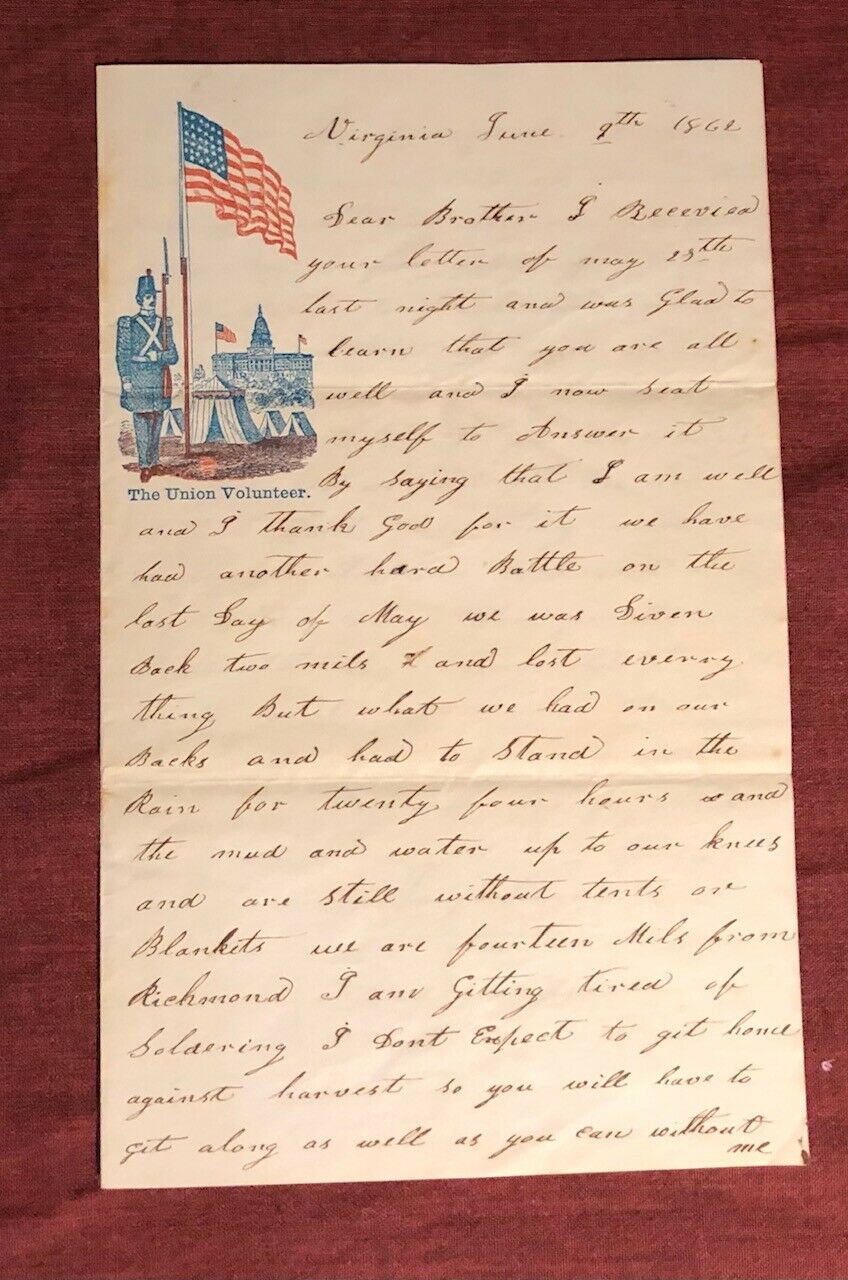 Virginia June 9th 1862
Dear Brother I Recevied
your letter of may 25th
last night and was Glad to
learn that you are all
well and I now seat
myself to Answer it
By saying that I am well
The Union Volunteer.
and I thank God for it we have
had another hard Battle on the
last Day of May we was Diven
Back two mils and lost everry
thing But what we had on our
Backs and had to Stand in the
Rain for twenty four hours and
the mud and water up to our knees
and are still without tents or
Blankets we are fourteen Mils from
Richmond I am Gitting tired of
Soldering I Dont Expect to git home
against harvest so you will have to
git along as well as you can without
me